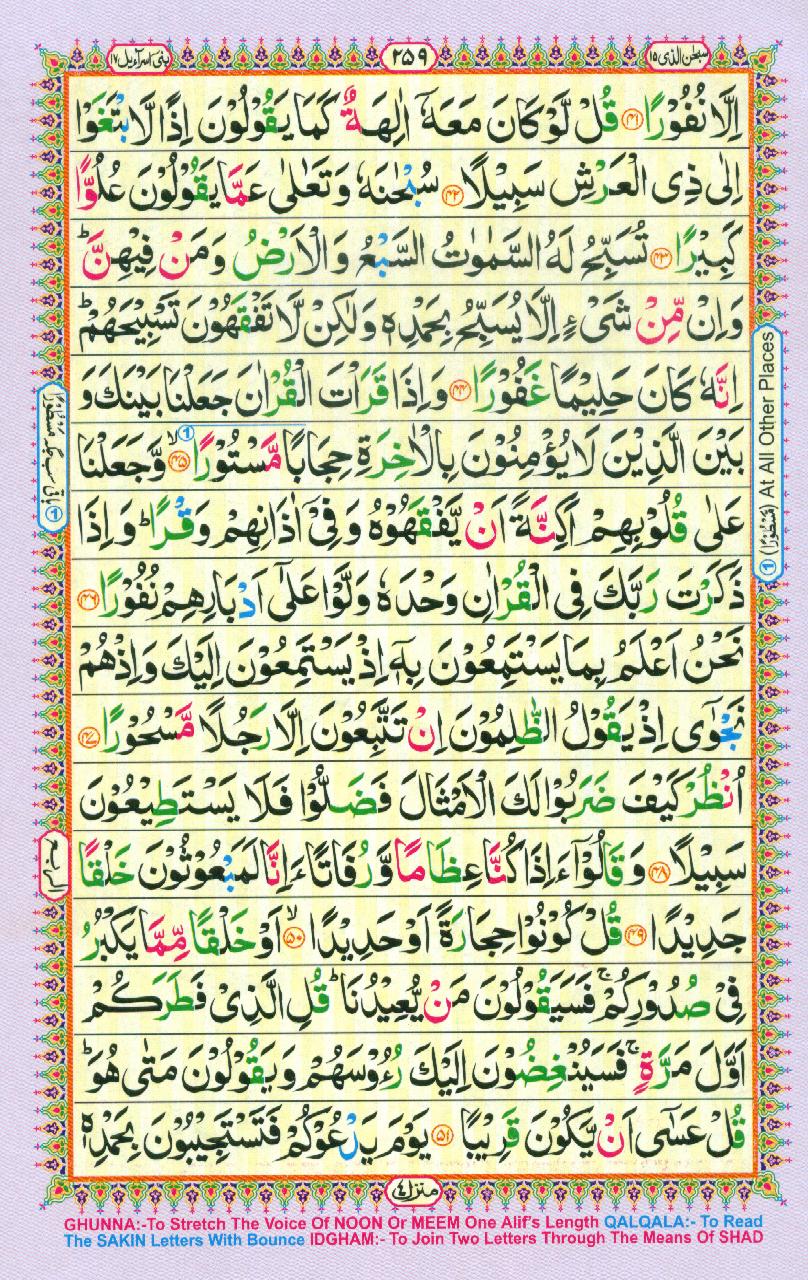 سبحٰن الذی ١٥
٢٥٩
بنیٓ اسرآءیل ١٧
اِلَّا نُفُوْرًا ﴿۴۱﴾ قُلْ لَّوْ كَانَ مَعَهٗۤ اٰلِهَةٌ كَمَا يَقُوْلُوْنَ اِذًا لَّابْتَغَوْا
اِلٰى ذِى الْعَرْشِ سَبِيْلًا ﴿۴۲﴾ سُبْحٰنَهٗ وَتَعٰلٰى عَمَّا يَقُوْلُوْنَ عُلُوًّا
كَبِيْرًا ﴿۴۳﴾ تُسَبِّحُ لَهُ السَّمٰوٰتُ السَّبْعُ وَالْاَرْضُ وَمَنْ فِيْهِنَّ ؕ
وَاِنْ مِّنْ شَىْءٍ اِلَّا يُسَبِّحُ بِحَمْدِهٖ وَلٰكِنْ لَّا تَفْقَهُوْنَ تَسْبِيْحَهُمْ ؕ
اِنَّهٗ كَانَ حَلِيْمًا غَفُوْرًا ﴿۴۴﴾ وَاِذَا قَرَاْتَ الْقُرْاٰنَ جَعَلْنَا بَيْنَكَ وَ
بَيْنَ الَّذِيْنَ لَا يُؤْمِنُوْنَ بِالْاٰخِرَةِ حِجَابًا مَّسْتُوْرًا ① ﴿۴۵﴾ ۙ وَّجَعَلْنَا
عَلٰى قُلُوْبِهِمْ اَكِنَّةً اَنْ يَّفْقَهُوْهُ وَفِىْۤ اٰذَانِهِمْ وَقْرًا ؕ وَاِذَا
ذَكَرْتَ رَبَّكَ فِى الْقُرْاٰنِ وَحْدَهٗ وَلَّوْا عَلٰٓى اَدْبَارِهِمْ نُفُوْرًا ﴿۴۶﴾
نَحْنُ اَعْلَمُ بِمَا يَسْتَمِعُوْنَ بِهٖۤ اِذْ يَسْتَمِعُوْنَ اِلَيْكَ وَاِذْ هُمْ
نَجْوٰٓى اِذْ يَقُوْلُ الظّٰلِمُوْنَ اِنْ تَتَّبِعُوْنَ اِلَّا رَجُلًا مَّسْحُوْرًا ﴿۴۷﴾
اُنْظُرْ كَيْفَ ضَرَبُوْا لَكَ الْاَمْثَالَ فَضَلُّوْا فَلَا يَسْتَطِيْعُوْنَ
سَبِيْلًا ﴿۴۸﴾ وَقَالُوْۤا ءَاِذَا كُنَّا عِظَامًا وَّرُفَاتًا ءَاِنَّا لَمَبْعُوْثُوْنَ خَلْقًا
جَدِيْدًا ﴿۴۹﴾ قُلْ كُوْنُوْا حِجَارَةً اَوْ حَدِيْدًا ﴿۵۰﴾ ۙ اَوْ خَلْقًا مِّمَّا يَكْبُرُ
فِىْ صُدُوْرِكُمْ ۚ فَسَيَقُوْلُوْنَ مَنْ يُّعِيْدُنَا ؕ قُلِ الَّذِىْ فَطَرَكُمْ
اَوَّلَ مَرَّةٍ ۚ فَسَيُنْغِضُوْنَ اِلَيْكَ رُءُوْسَهُمْ وَيَقُوْلُوْنَ مَتٰى هُوَ ؕ
قُلْ عَسٰٓى اَنْ يَّكُوْنَ قَرِيْبًا ﴿۵۱﴾ يَوْمَ يَدْعُوْكُمْ فَتَسْتَجِيْبُوْنَ بِحَمْدِهٖ
① (مَسْطُوْرًا) At All Other Places
① باقی سب جگہ مَسْطُوْرًا
الربع
منزل ٤
GHUNNA:-To Stretch The Voice Of NOON Or MEEM One Alif's Length QALQALA:- To Read
The SAKIN Letters With Bounce IDGHAM:- To Join Two Letters Through The Means Of SHAD